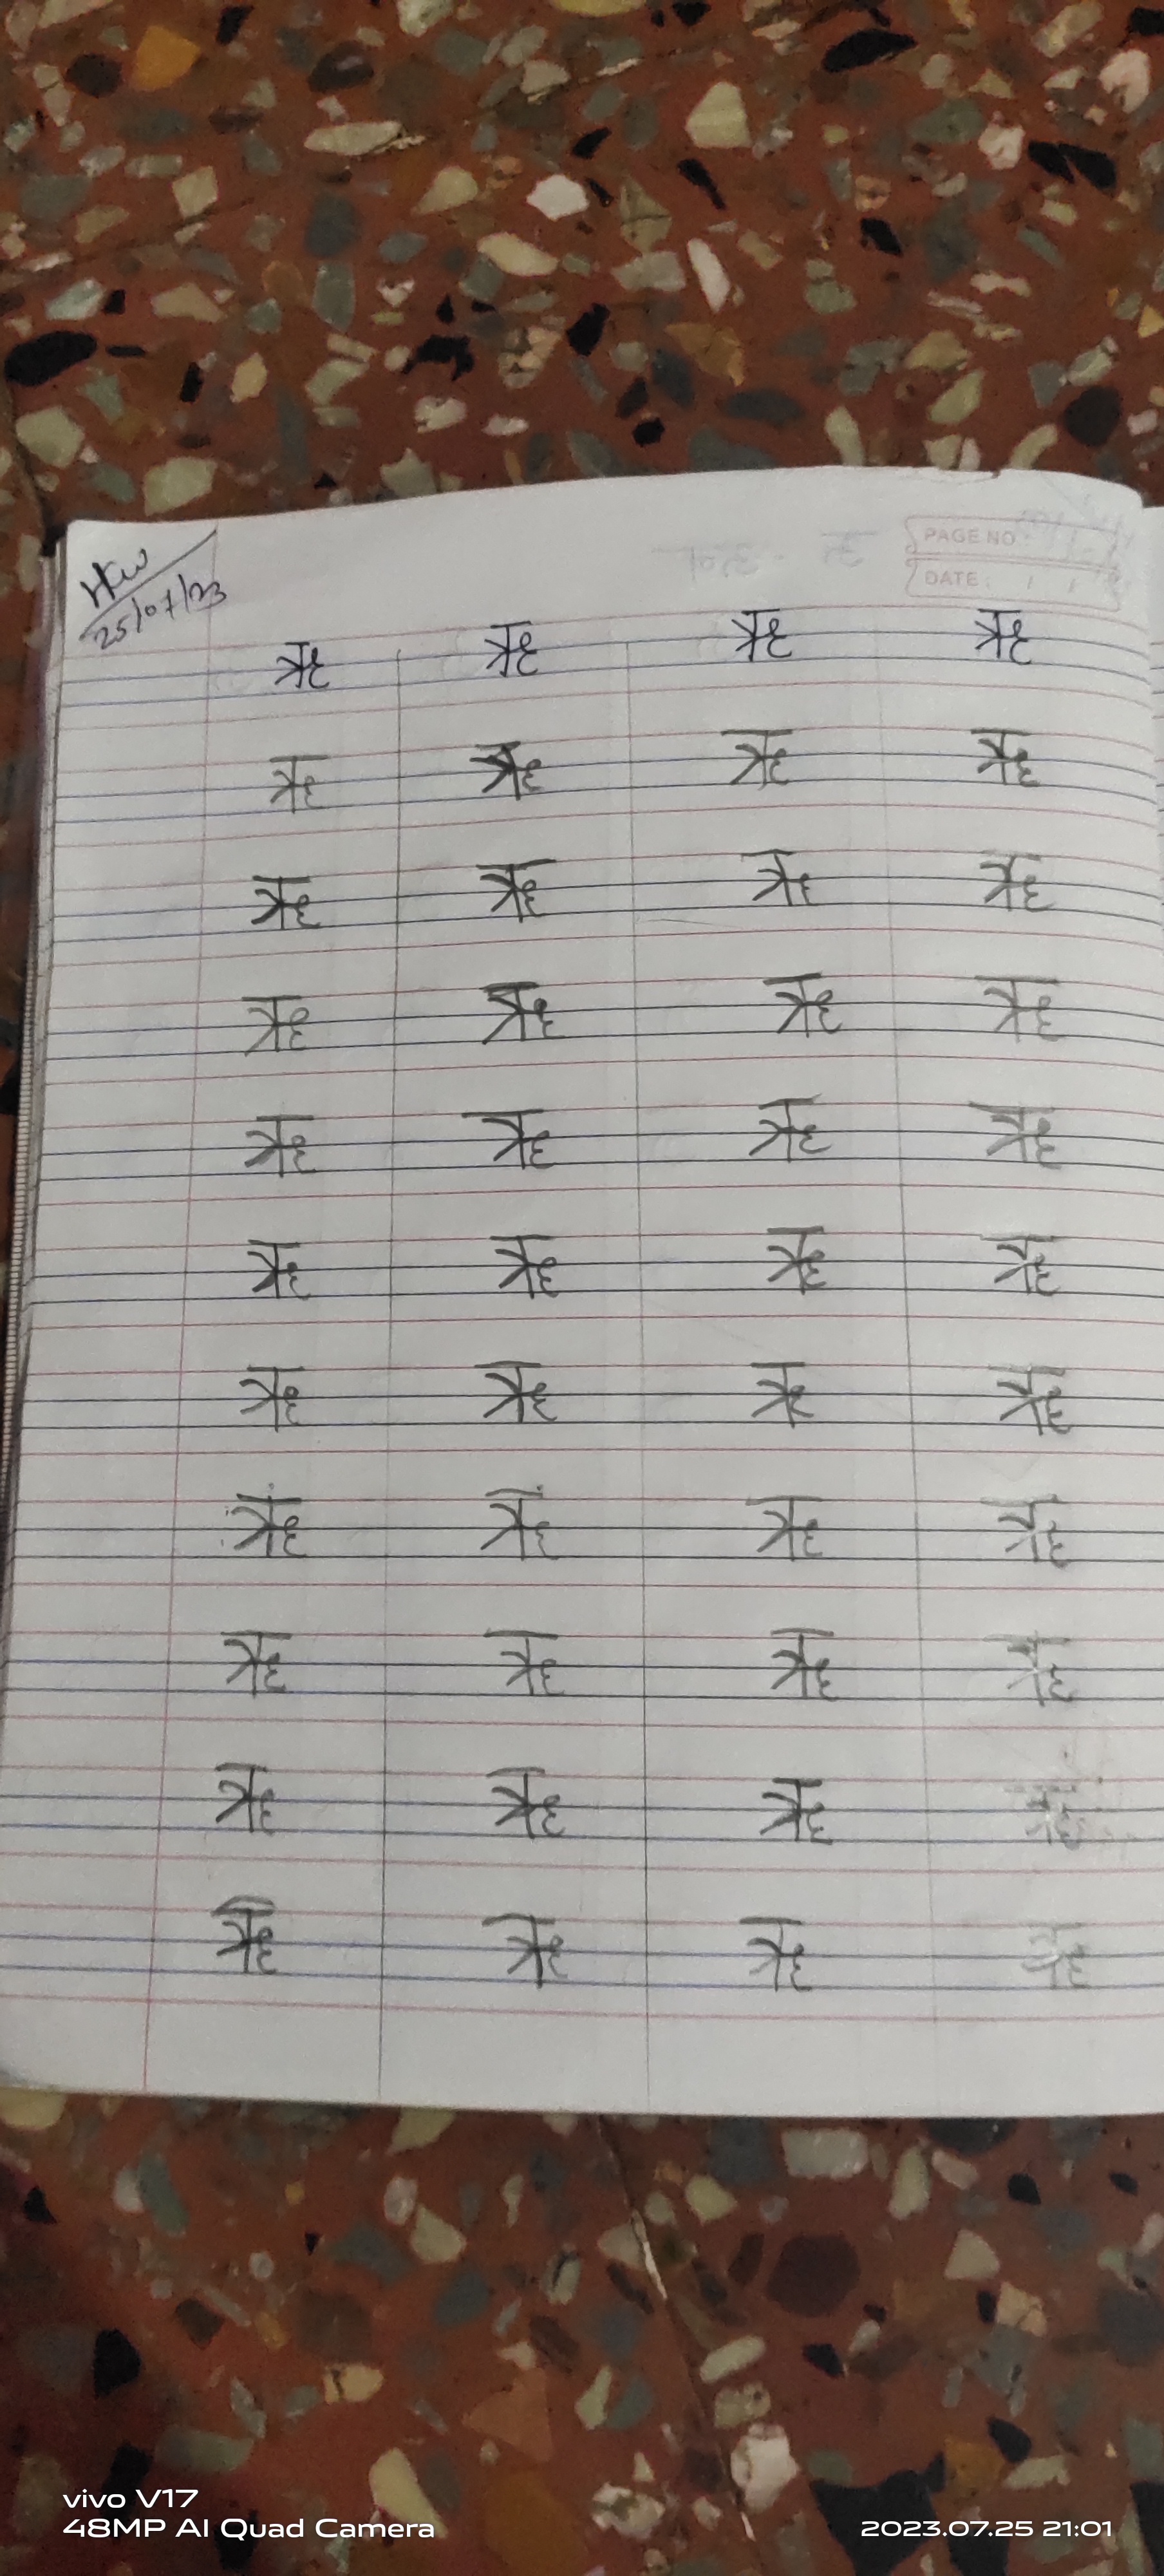 HW
25/07/23
PAGE NO:
DATE: / /
ऋ ऋ ऋ ऋ
ऋ ऋ ऋ ऋ
ऋ ऋ ऋ ऋ
ऋ ऋ ऋ ऋ
ऋ ऋ ऋ ऋ
ऋ ऋ ऋ ऋ
ऋ ऋ ऋ ऋ
ऋ ऋ ऋ ऋ
ऋ ऋ ऋ ऋ
ऋ ऋ ऋ ऋ
ऋ ऋ ऋ ऋ
vivo V17
48MP AI Quad Camera
2023.07.25 21:01